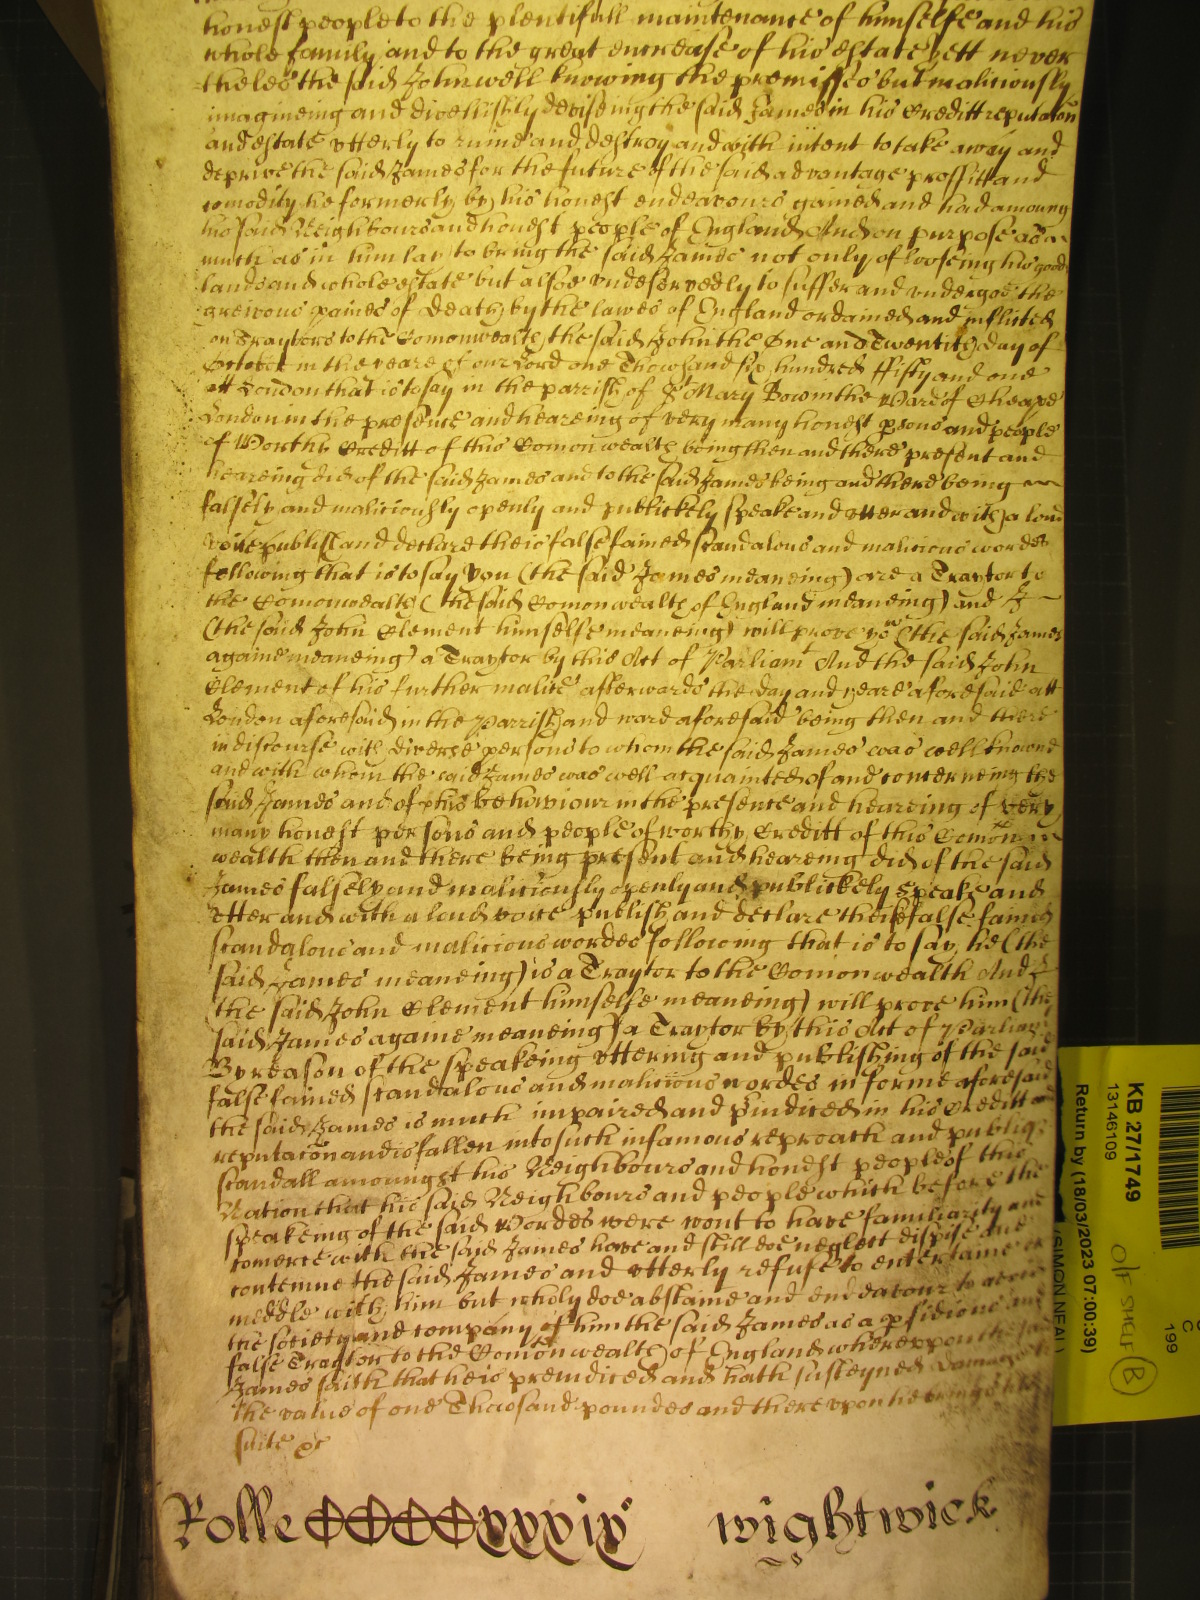 honest people to the plentifull maintenance of himselfe and his
whole family and to the great encrease of his estate yett never
theles the said John well knowing the premisses but maliciously
imagineing and divellishly deviseing the said James in his Creditt reputacon
and estate utterly to ruine and destroy and with intent to take away and
deprive the said James for the future of the said advantage proffitt and
comodity he formerly by his honest endeavours gained and had amoung
his said Neighbours and honest people of England And on purpose as
much as in him lay to bring the said James not only of looseing his goods
lands and whole estate but alsoe undeservedly to suffer and undergoe the
greivous paines of death by the lawes of England ordained and inflicted
on Traytors to the Comonwealth the said John the One and Twentith day of
October in the yeare of our Lord one Thowsand six hundred ffifty and one
att London that is to say in the parrish of St Mary Bow in the Ward of Cheape
London in the presence and heareing of very many honest psons and people
of Worthy Creditt of this Comonwealth being then and there present and
heareing did of the said James and to the said James being and there being
falsely and maliciously openly and publickely speake and utter and with a loud
voice publish and declare theis false fained scandalous and malicious wordes
following that is to say you (the said James meaneing) are a Traytor to
the Comonwealth (the said Comonwealth of England meaneing) and I
(the said John Clement himselfe meaneing) will prove yow (the said James
againe meaneing) a Traytor by this Act of Parliamt And the said John
Clement of his further malice afterwards the day and yeare aforesaid att
London aforesaid in the parrish and ward aforesaid being then and there
in discourse with diverse persons to whom the said James was well knowne
and with whom the said James was well acquainted of and concerneing the
said James and of his behaviour in the presence and heareing of very
many honest persons and people of worthy Creditt of this Comon
wealth then and there being present and heareing did of the said
James falsely and maliciously openly and publickely speake and
utter and with a loud voice publish and declare theis false fained
scandalous and malicious wordes following that is to say, he (the
said James meaneing) is a Traytor to the Comonwealth And I
(the said John Clement himselfe meaneing) will prove him (the
said James againe meaneing) a Traytor by this Act of Parliamt
By reason of the speakeing uttering and publishing of the said
false fained scandalous and malicious wordes in forme aforesaid
the said James is much impaired and piudiced in his Creditt and
reputacon and is fallen into such infamous reproach and publiq
scandall amoungst his Neighbours and honest people of this
Nation that his said Neighbours and people which before the
speakeing of the said Wordes were wont to have familiarity and
comerce with the said James have and still doe neglect dispise and
contemne the said James and utterly refuse to entertaine or
meddle with him but wholy doe abstaine and endeavour to avoid
the society and company of him the said James as a pfidious and
false Traytor to the Comonwealth of England whereuppon the said
James saith that he is preiudiced and hath susteyned Damage to
the value of one Thowsand poundes and thereupon he brings his
suite &c
Rolle CCCCxxxix wightwick
KB 27/1749
13146109
Return by (18/03/2023 07:00:39)
(SIMON NEAL)
O/F SHELF (B)
C
199